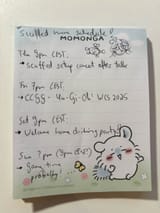 Scuffed home schedule!
MOMONGA
Thu 9pm CEST:
→ Scuffed setup comet after talk
Fri 7pm CEST:
→ CCGG - Yu-Gi-Oh! WCS 2025
Sat 9pm CEST:
→ Welcome home drinking party!!
Sun ? pm (9pm CEST?)
→ Game time
probably!